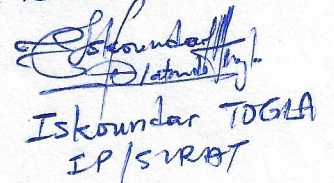 Iskoundar
Iskoundar TOGLA
IP/SURAT